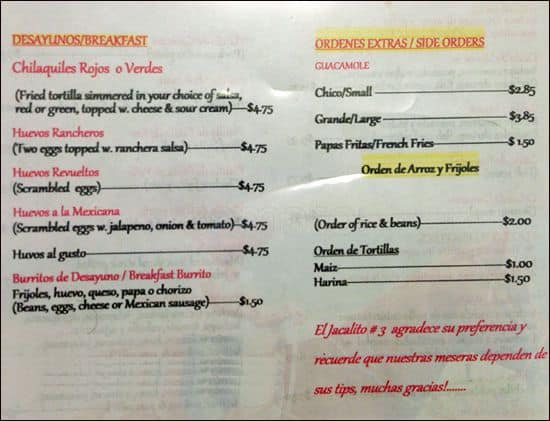 DESAYUNOS/BREAKFAST
Chilaquiles Rojos o Verdes
(Fried tortilla simmered in your choice of salsa,
red or green, topped w. cheese & sour cream)—$4.75
Huevos Rancheros
(Two eggs topped w. ranchera salsa)—$4.75
Huevos Revueltos
(Scrambled eggs)—$4.75
Huevos a la Mexicana
(Scrambled eggs w. jalapeno, onion & tomato)—$4.75
Huvos al gusto—$4.75
Burritos de Desayuno / Breakfast Burrito
Frijoles, huevo, queso, papa o chorizo
(Beans, eggs, cheese or Mexican sausage)—$1.50
ORDENES EXTRAS / SIDE ORDERS
GUACAMOLE
Chico/Small—$2.85
Grande/Large—$3.85
Papas Fritas/French Fries—$ 1.50
Orden de Arroz y Frijoles
(Order of rice & beans)—$2.00
Orden de Tortillas
Maiz—$1.00
Harina—$1.50
El Jacalito # 3 agradece su preferencia y
recuerde que nuestras meseras dependen de
sus tips, muchas gracias!.......